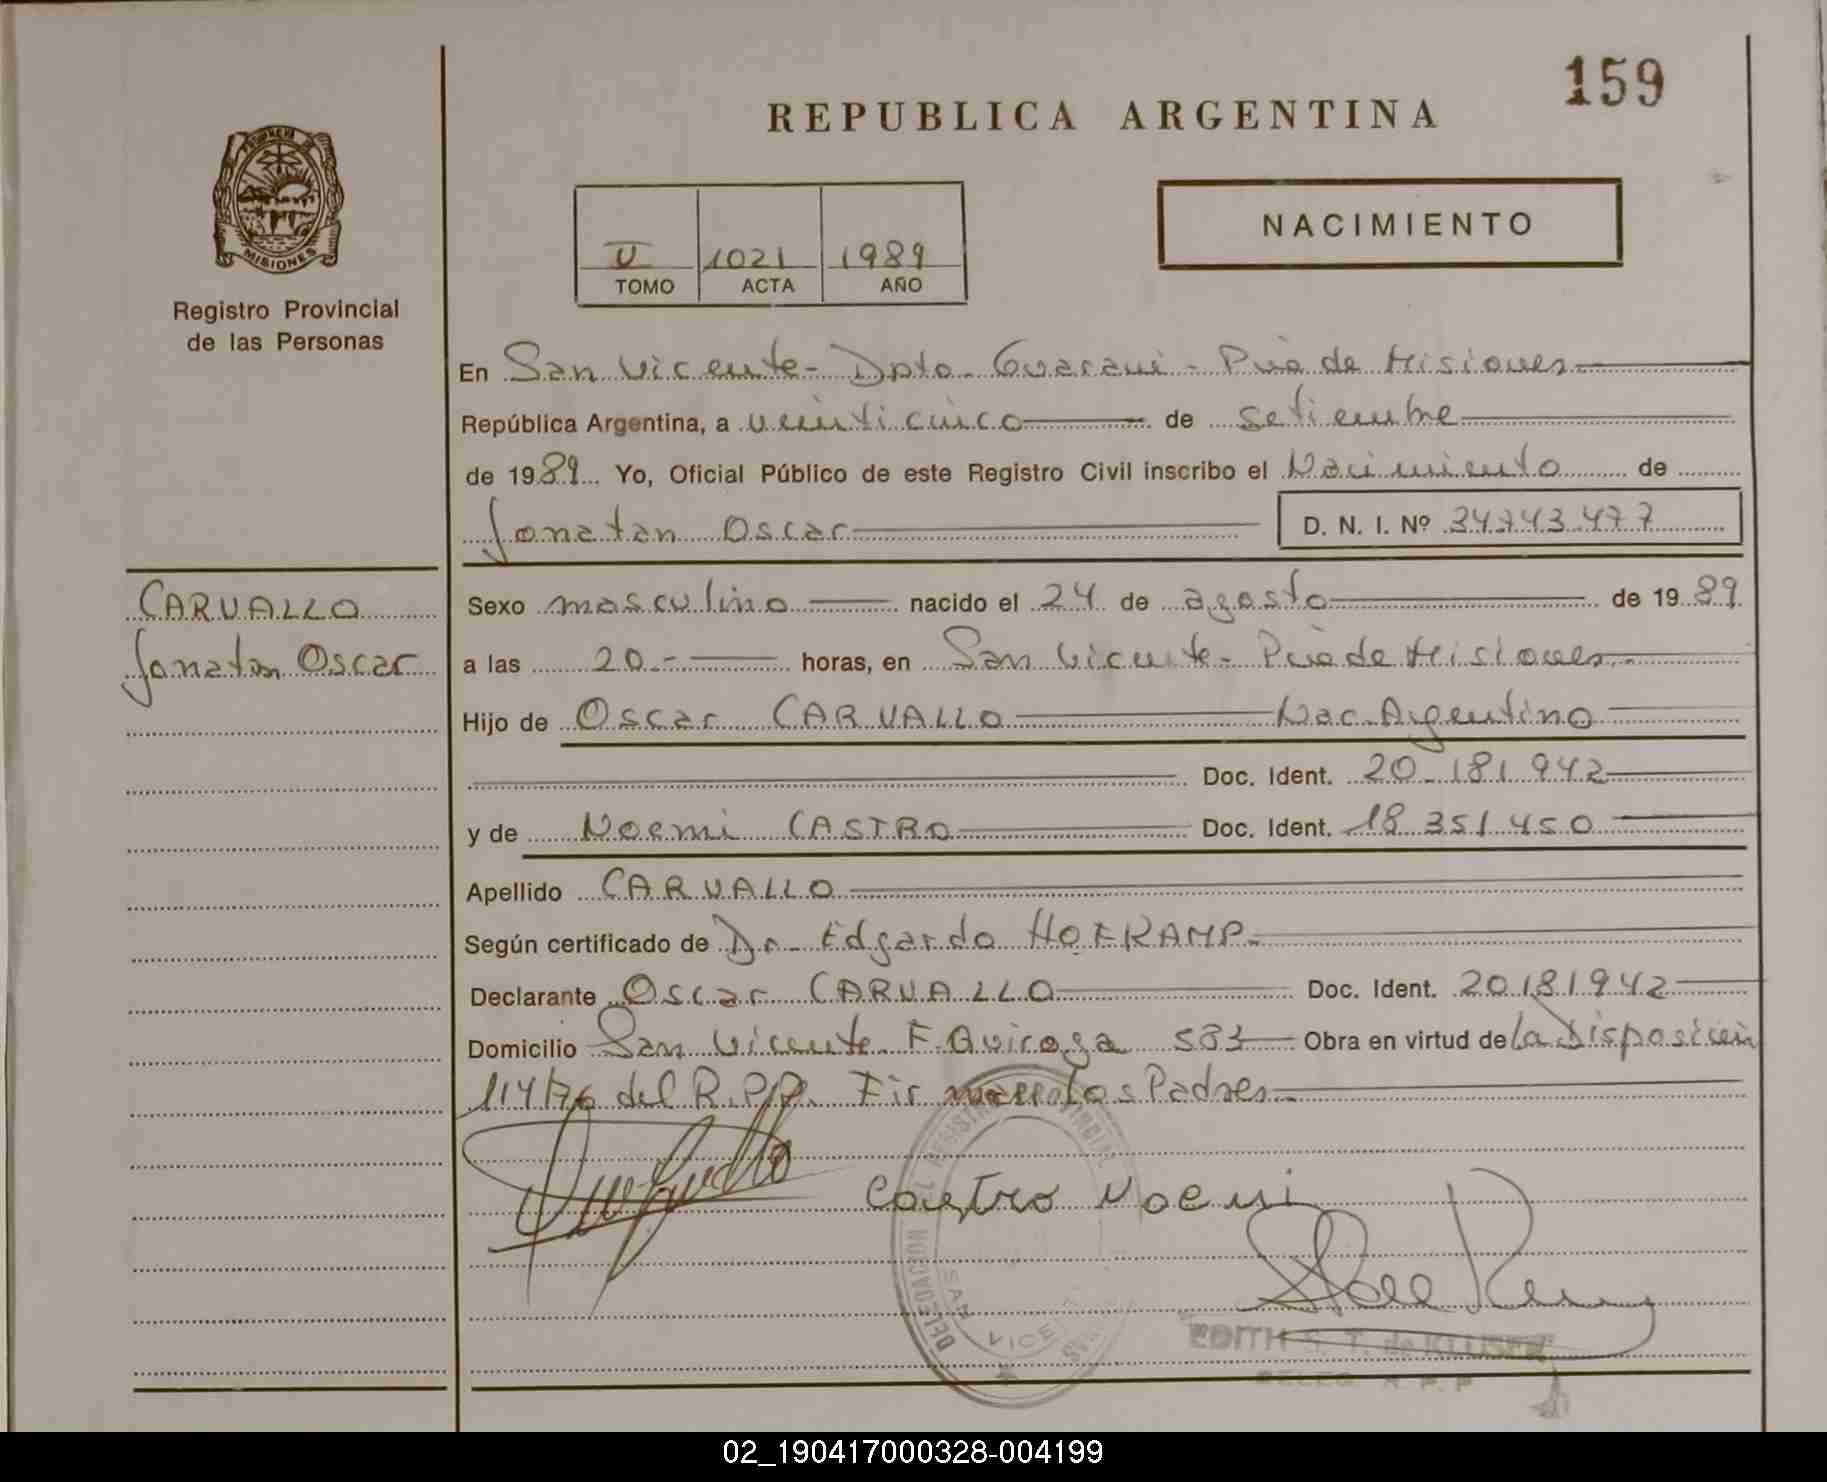 159
REPUBLICA ARGENTINA
NACIMIENTO
MISIONES
Registro Provincial
de las Personas
V 1021 1989
TOMO ACTA AÑO
En San Vicente - Dpto. Guarani - Pcia de Misiones
República Argentina, a veinticinco de setiembre
de 1989 Yo, Oficial Público de este Registro Civil inscribo el Nacimiento de
Jonatan Oscar D. N. I. Nº 34743.477
CARVALLO
Jonatan Oscar
Sexo masculino nacido el 24 de agosto de 1989
a las 20.- horas, en San Vicente - Pcia de Misiones.-
Hijo de Oscar CARVALLO Nac. Argentino
Doc. Ident. 20.181.942
y de Noemi CASTRO Doc. Ident. 18.351.450
Apellido CARVALLO
Según certificado de Dr. Edgardo HOFKAMP.
Declarante Oscar CARVALLO Doc. Ident. 20.181942
Domicilio San Vicente F. Quiroga Obra en virtud de la Disposicion
114/76 del R.P.P. Firman los Padres.-
Castro Noemi
DELEGACION REGISTRO PROVINCIAL
SAN VICENTE
EDITH S. T. de KLUSEN
DELEG. R.P.P
02_190417000328-004199